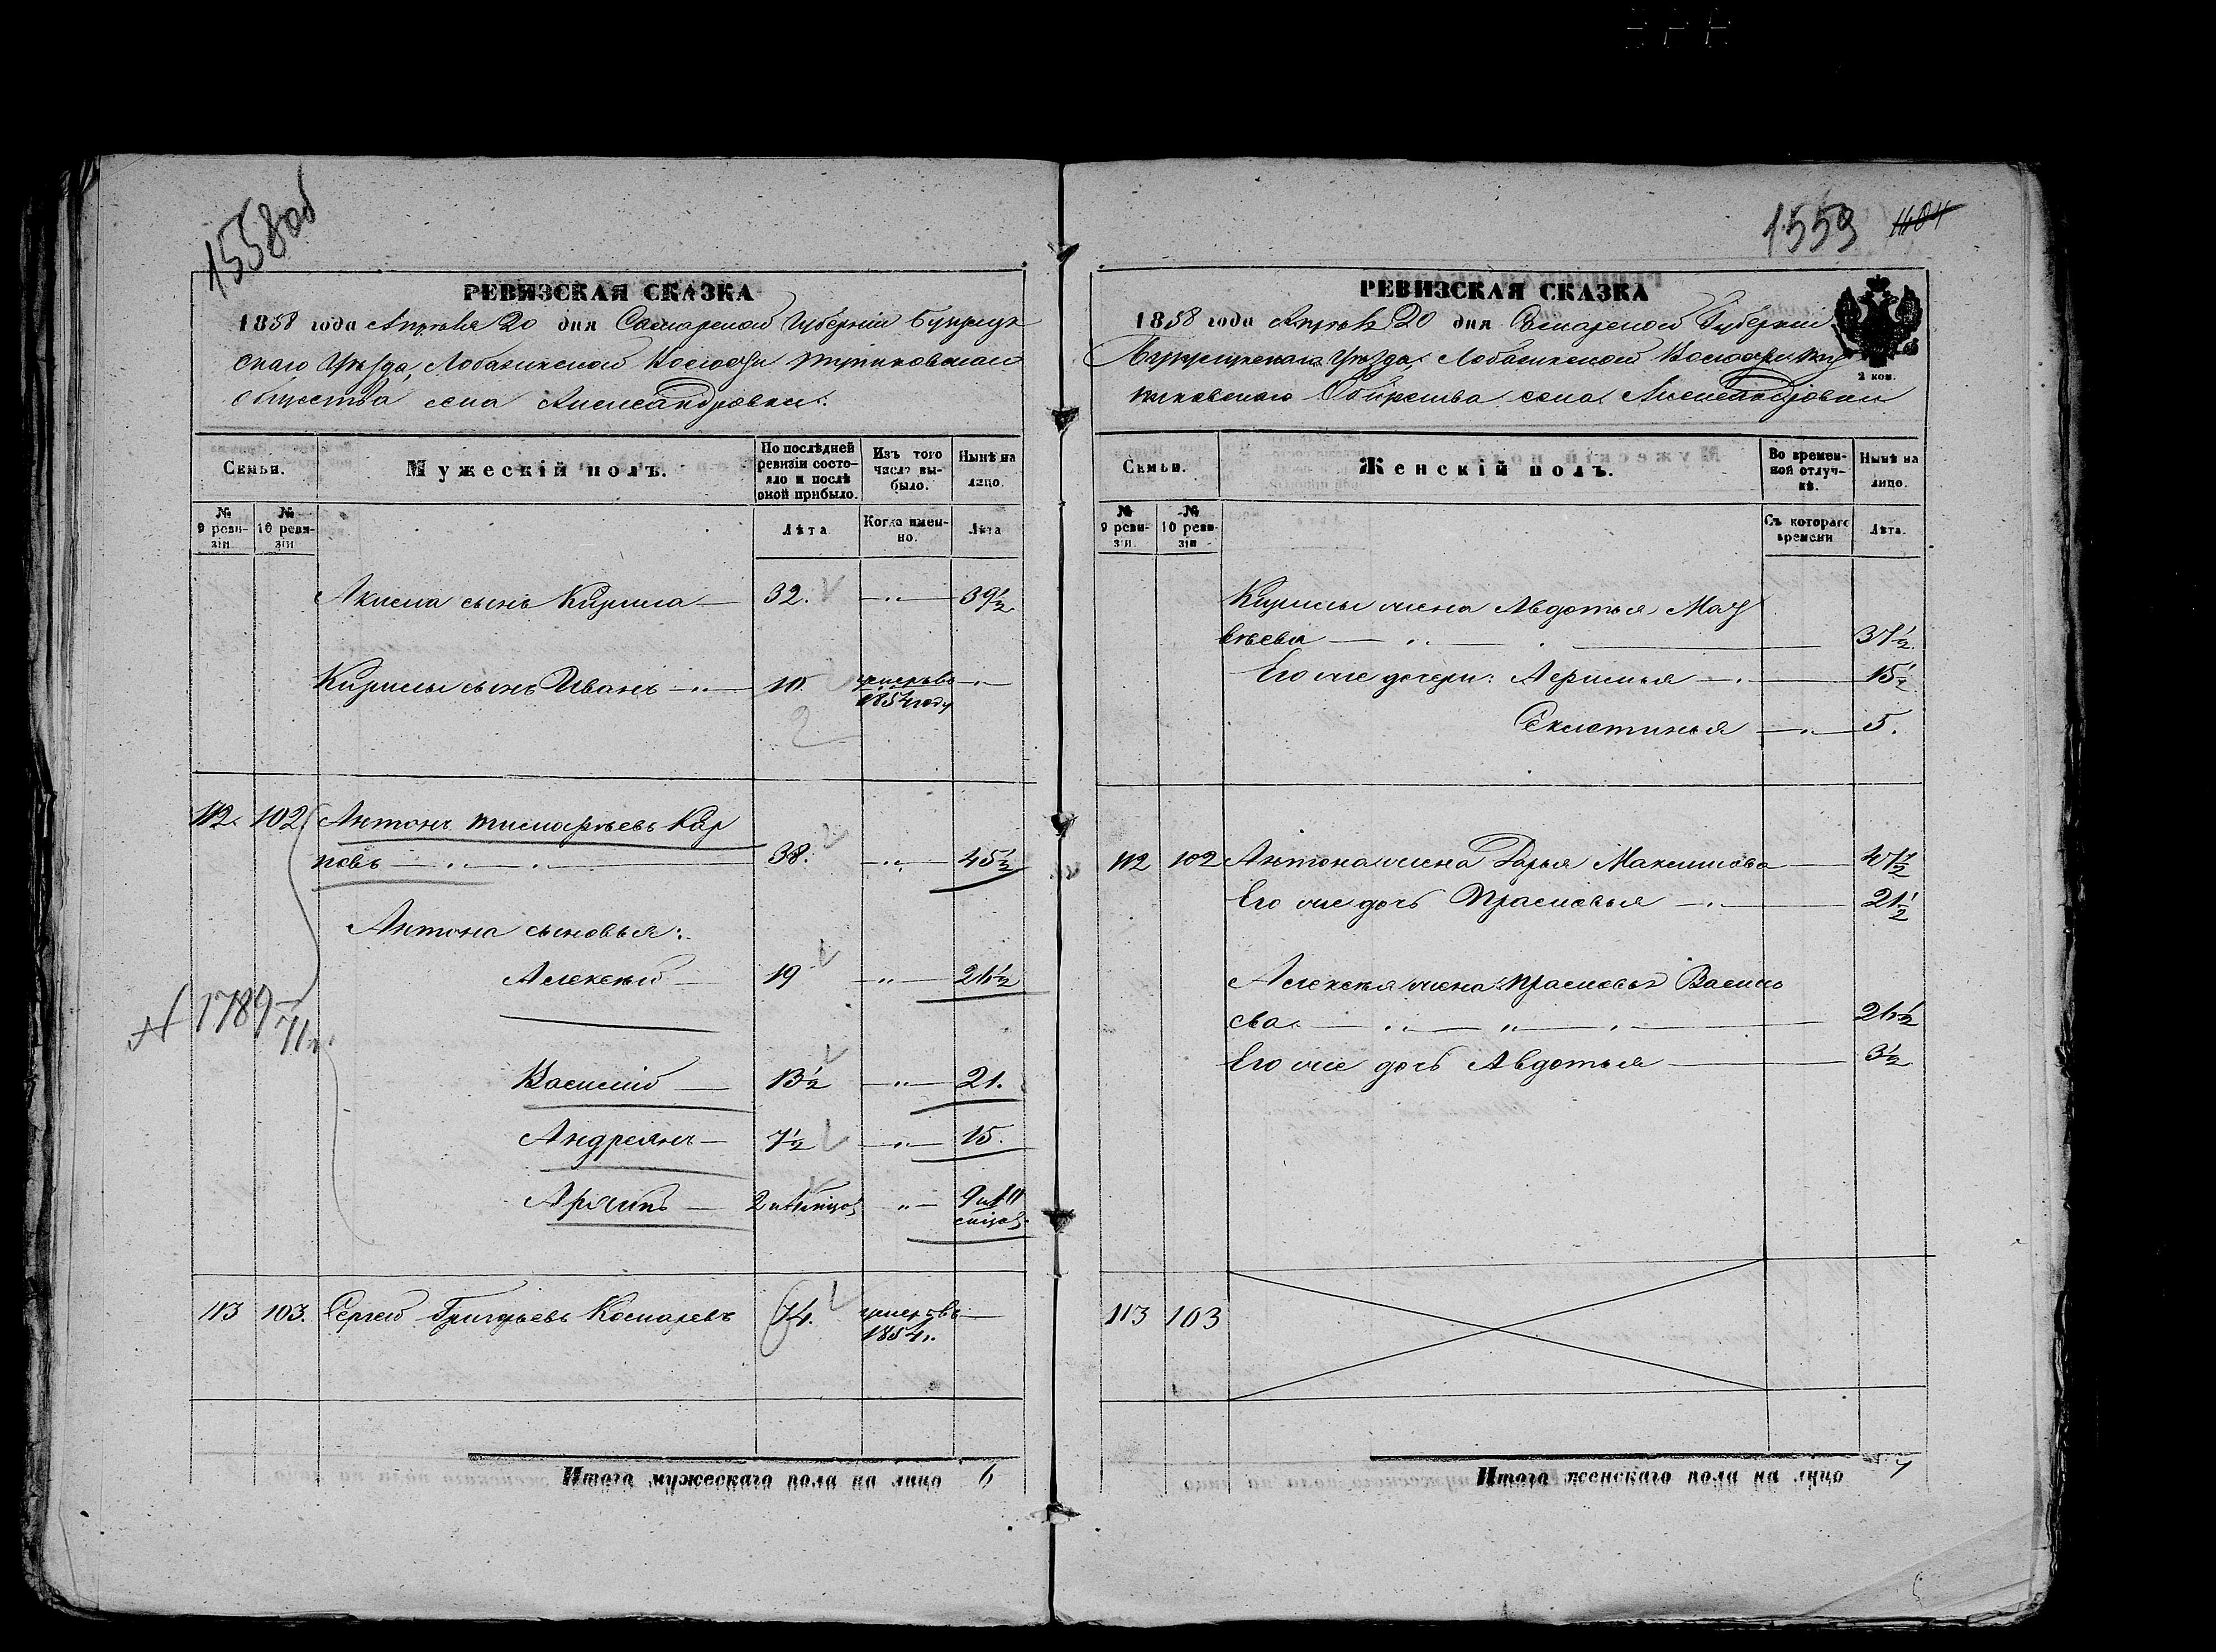 1558об
РЕВИЗСКАЯ СКАЗКА
1858 года Апреля 20 дня Самарской Губернии Бузулук
скаго Уезда, Лобазинской Волости
общества села Александровки.
Семьи.
Мужескій полъ.
По послѣдней ревизіи состояло и послѣ оной прибыло.
Изъ того числа выбыло.
Нынѣ на лицо.
№ 9 ревизіи
№ 10 ревизіи
Лѣта
Когда именно.
Лѣта
Акима сынъ Кирила 32. 39½
Кирилы сынъ Иванъ 10. умеръ въ
1854 году
2
112. 102.
Антонъ Кар
повъ 38. 45½
Антона сыновья:
Алексѣй 19 26½
№ 1789
71
Василій 13½ 21.
Андреянъ 7½ 15.
Архипъ
113 103. Сергей Григорьевъ 74. умеръ въ
1854г.
Итого мужескаго пола на лицо 6
1559 1104
РЕВИЗСКАЯ СКАЗКА
1858 года Апреля 20 дня Самарской Губернии
Бузулукскаго Уезда, Лобазинской Волости
Общества села Александровки
2 коп.
Семьи.
Женскій полъ.
Во временной отлучкѣ.
Нынѣ на лицо.
№ 9 ревизіи
№ 10 ревизіи
Съ котораго времени
Лѣта.
Кирилы жена Авдотья Мат
вѣева 37½
Его же дочери: 15½
Секлетинья 5.
112 102 Антона жена Дарья Максимова 47½
Его же дочь Прасковья 21½
Алексѣя жена Прасковья Василь
ева 26½
Его же дочь Авдотья 3½
113 103
Итого женскаго пола на лицо 7